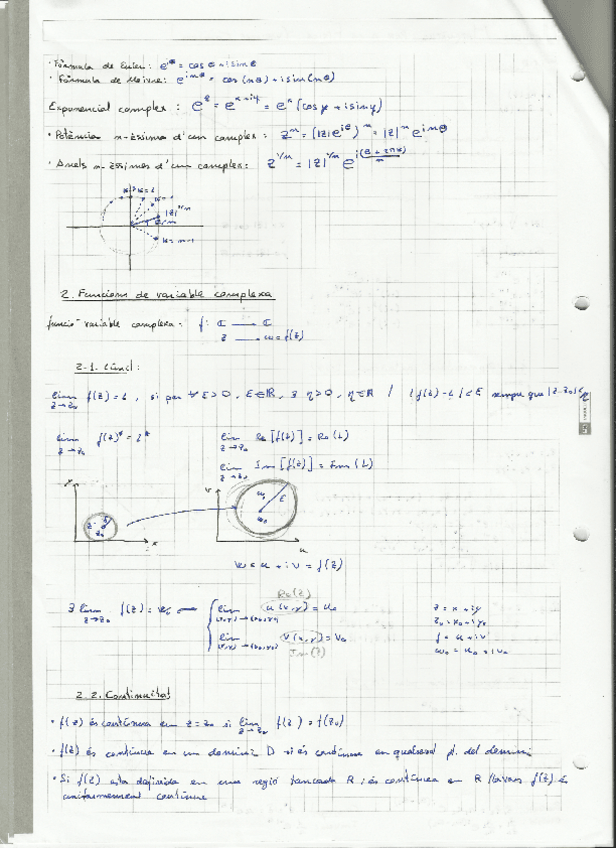 · Fórmula de Euler: e^{iθ} = cos θ + i sin θ
· Fórmula de Moivre: e^{inθ} = cos(nθ) + i sin(nθ)
Exponencial complex: e^z = e^{x+iy} = e^x (cos y + i sin y)
· Potència n-èssima d'un complex: z^n = (|z| e^{iθ})^n = |z|^n e^{inθ}
· Arrels n-èssimes d'un complex: z^{1/n} = |z|^{1/n} e^{i(θ + 2πk)/n}
k=2
k=1
|z|^{1/n}
θ/n
k=n-1
2. Funcions de variable complexa
funció variable complexa: f: ℂ → ℂ
z → w = f(z)
2.1. Límit:
lim z→z₀ f(z) = L, si per ∀ ε>0, ε∈ℝ, ∃ η>0, η∈ℝ / |f(z) - L| < ε sempre que |z-z₀| < η
lim z→z₀ f(z)* = L*
lim z→z₀ Re[f(z)] = Re(L)
lim z→z₀ Im[f(z)] = Im(L)
y
z
z₀
x
v
w
ε
w₀
u
w = u + iv = f(z)
Re(z)
∃ lim z→z₀ f(z) = w₀
lim (x,y)→(x₀,y₀) u(x,y) = u₀
lim (x,y)→(x₀,y₀) v(x,y) = v₀
Im(z)
z = x + iy
z₀ = x₀ + iy₀
f = u + iv
w₀ = u₀ + iv₀
2.2. Continuïtat
· f(z) és contínua en z = z₀ si lim z→z₀ f(z) = f(z₀)
· f(z) és contínua en un domini D si és contínua en qualsevol pt. del domini
· Si f(z) esta definida en una regió tancada R i és contínua en R llavors f(z) és
uniformement contínua